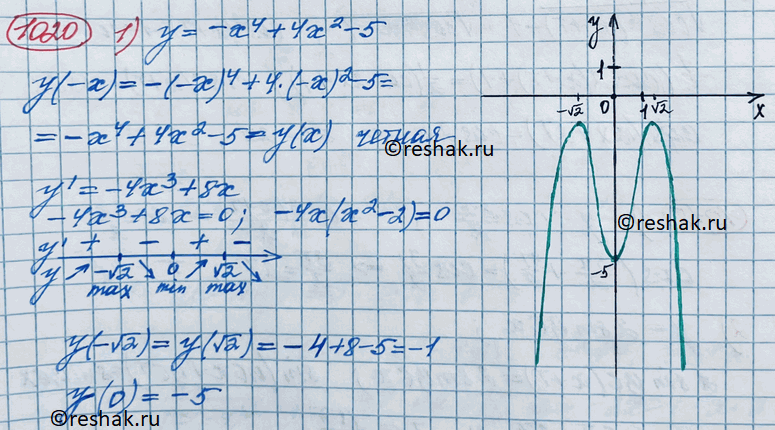 1020 1) y = -x⁴ + 4x² - 5
y(-x) = -(-x)⁴ + 4·(-x)² - 5 =
= -x⁴ + 4x² - 5 = y(x) четная
©reshak.ru
y' = -4x³ + 8x
-4x³ + 8x = 0; -4x(x² - 2) = 0
y' + - + -
y ↗ -√2 ↘ 0 ↗ √2 ↘
max min max
y(-√2) = y(√2) = -4 + 8 - 5 = -1
y(0) = -5
©reshak.ru
y
1
-√2 0 1 √2 x
©reshak.ru
-5